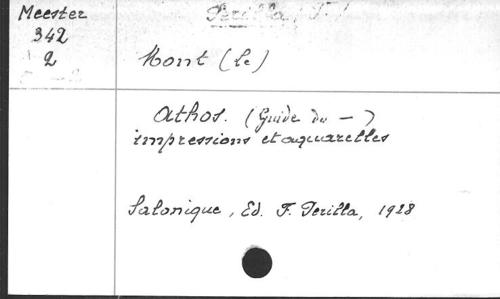 Meester
342
2
Perilla, F.
Mont (le)
Athos. (Guide du —)
impressions et aquarelles
Salonique, Ed. F. Perilla, 1928